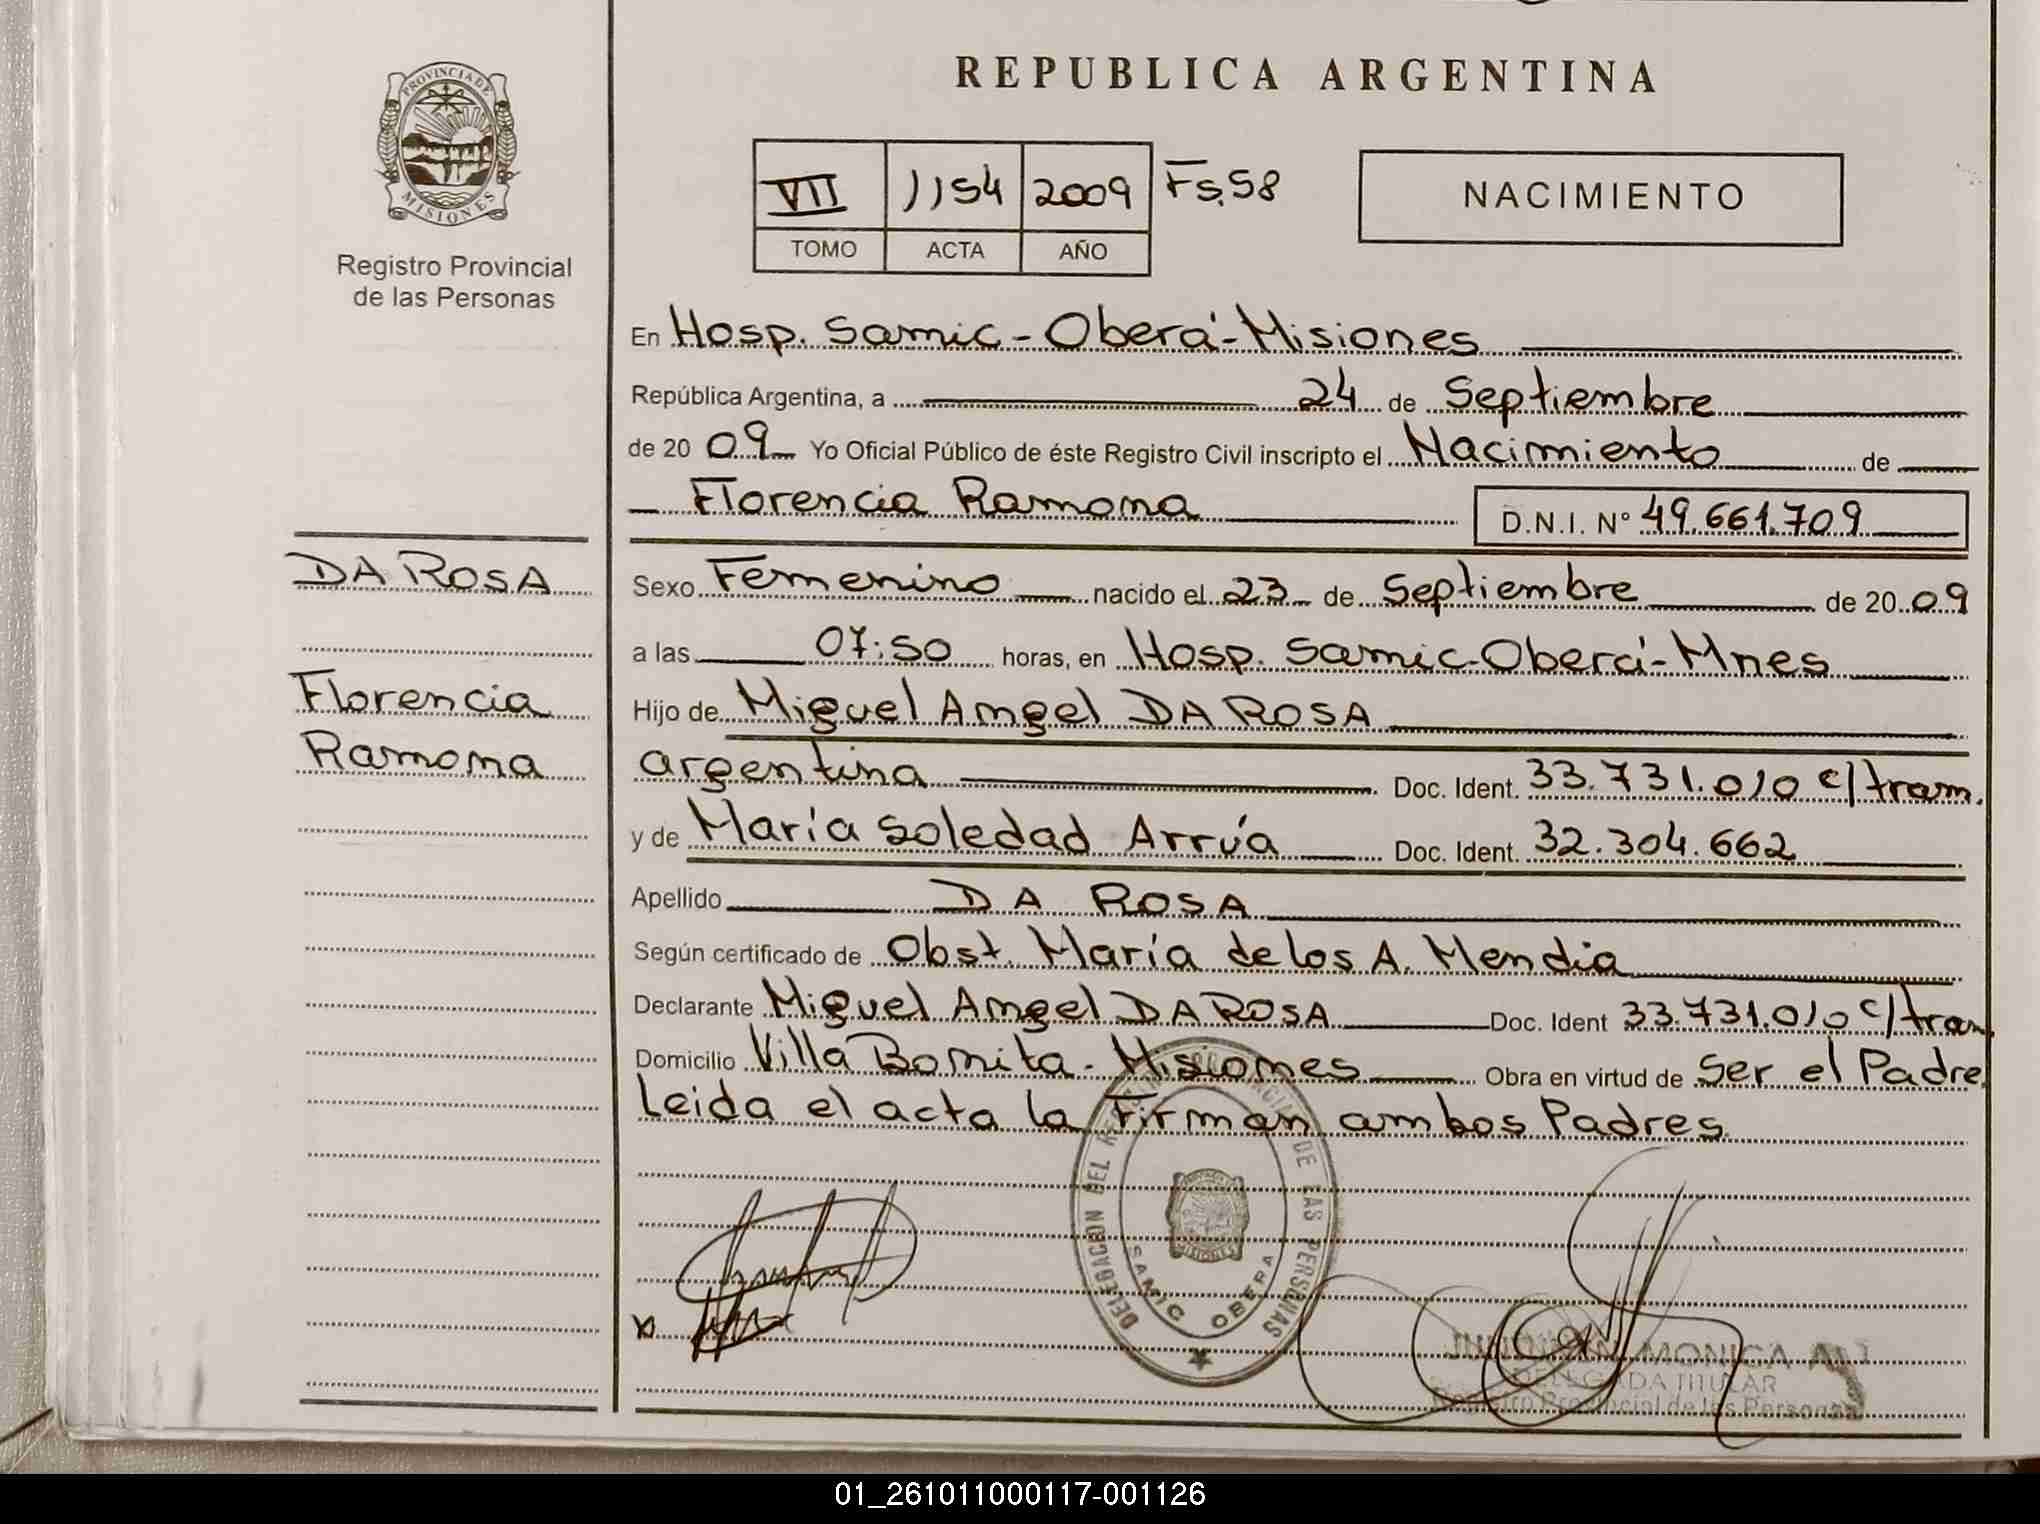 REPUBLICA ARGENTINA
PROVINCIA DE
MISIONES
Registro Provincial
de las Personas
VII 1154 2009 Fs. 58
TOMO ACTA AÑO
NACIMIENTO
En Hosp. Samic - Oberá - Misiones
República Argentina, a 24 de Septiembre
de 20 09 Yo Oficial Público de éste Registro Civil inscripto el Nacimiento de
Florencia Ramona D.N.I. Nº 49.661.709
DA ROSA
Florencia
Ramona
Sexo Femenino nacido el 23 de Septiembre de 20 09
a las 07:50 horas, en Hosp. Samic - Oberá - Mnes
Hijo de Miguel Angel DA ROSA
argentina Doc. Ident. 33.731.010 c/tram.
y de María Soledad Arrúa Doc. Ident. 32.304.662
Apellido DA ROSA
Según certificado de Obst. María de los A. Mendia
Declarante Miguel Angel DA ROSA Doc. Ident 33.731.010 c/tram
Domicilio Villa Bonita - Misiones Obra en virtud de Ser el Padre
Leida el acta la Firman ambos Padres
DELEGACION DEL REGISTRO PROVINCIAL DE LAS PERSONAS
MISIONES
SAMIC OBERA
MONICA
DELEGADA TITULAR
Registro Provincial de las Personas
01_261011000117-001126